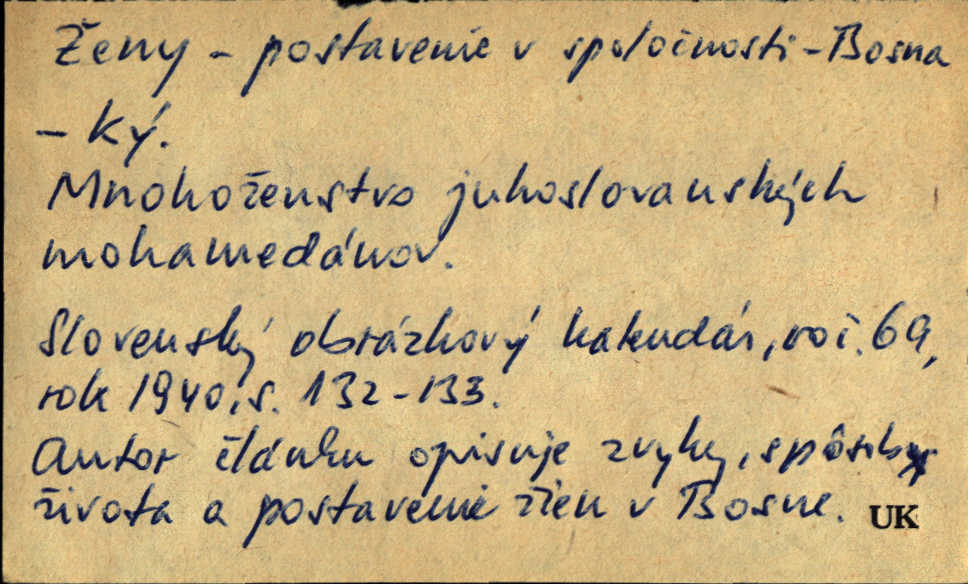 Ženy - postavenie v spoločnosti - Bosna
- ký.
Mnohoženstvo juhoslovanských
mohamedánov.
Slovenský obrázkový kalendár, roč. 69,
rok 1940, s. 132-133.
Autor článku opisuje zvyky, spôsob
života a postavenie žien v Bosne. UK